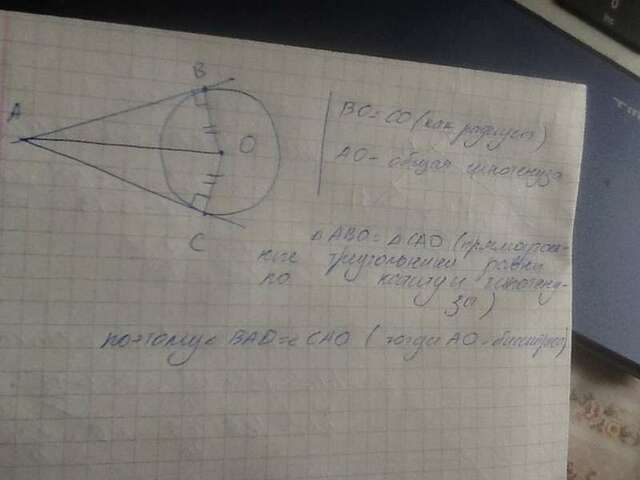 A
B
O
C
BO = CO (как радиусы)
AO - общая гипотенуза
△ABO = △CAO (прямоуголь-
ные треугольники равны
по катету и гипотену-
зе)
поэтому ∠BAO = ∠CAO (тогда AO - биссектриса)